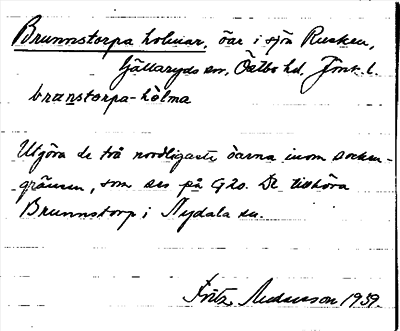 Brunnstorpa holmar, öar i sjön Rusken,
Gällaryds sn. Östbo hd. Jönk. l.
brɑnstorpa-hòlma
Utgöra de två nordligaste öarna inom socken-
gränsen, som ses på G 20. De tillhöra
Brunnstorp i Nydala sn.
Fritz Andersson 1939.